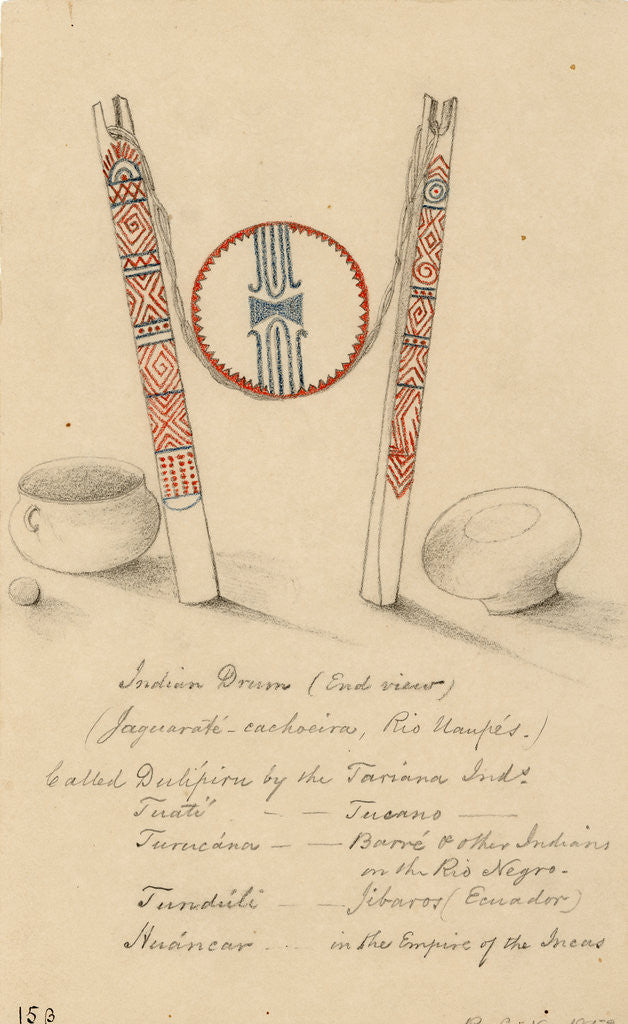 Indian Drum (End view)
(Jaguaraté-cachoeira, Rio Uaupés.)
Called Dulípiru by the Tariana Inds.
Tuatí - - Tucano —
Turucána - - Barré & other Indians
on the Rio Negro.
Tundúli - - Jibaros (Ecuador)
Huáncar ... in the Empire of the Incas
15β